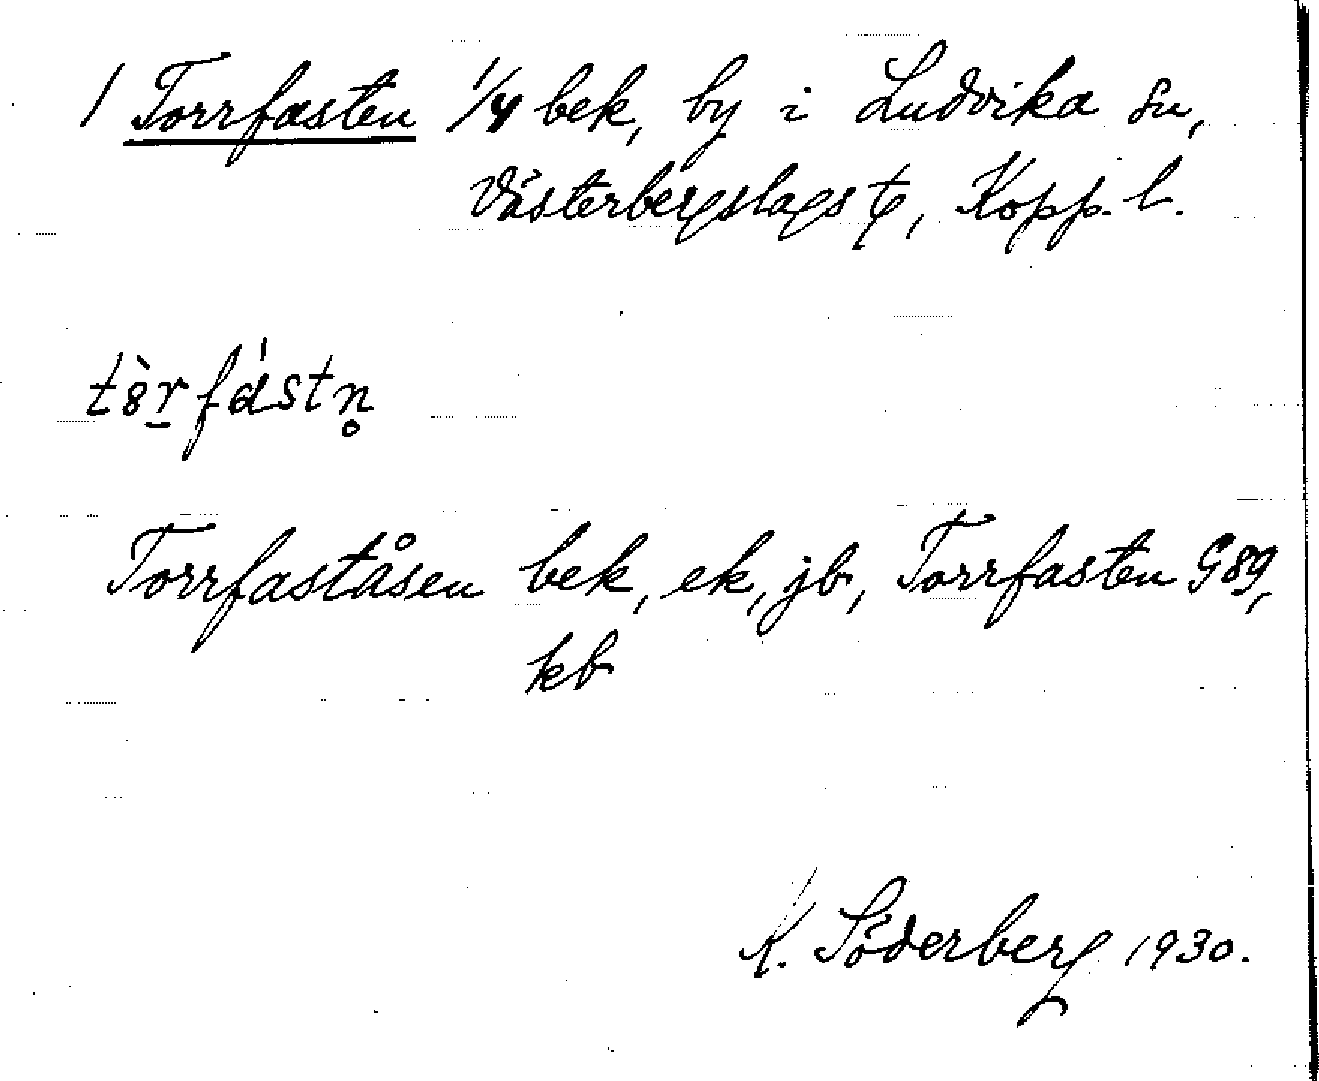 1 Torrfasten 1/4 bek, by i Ludvika sn,
Västerbergslags tg, Kopp. l.
tèr̲fástn̥
Torrfaståsen bek, ek, jb, Torrfasten G89,
kb
K. Söderberg 1930.